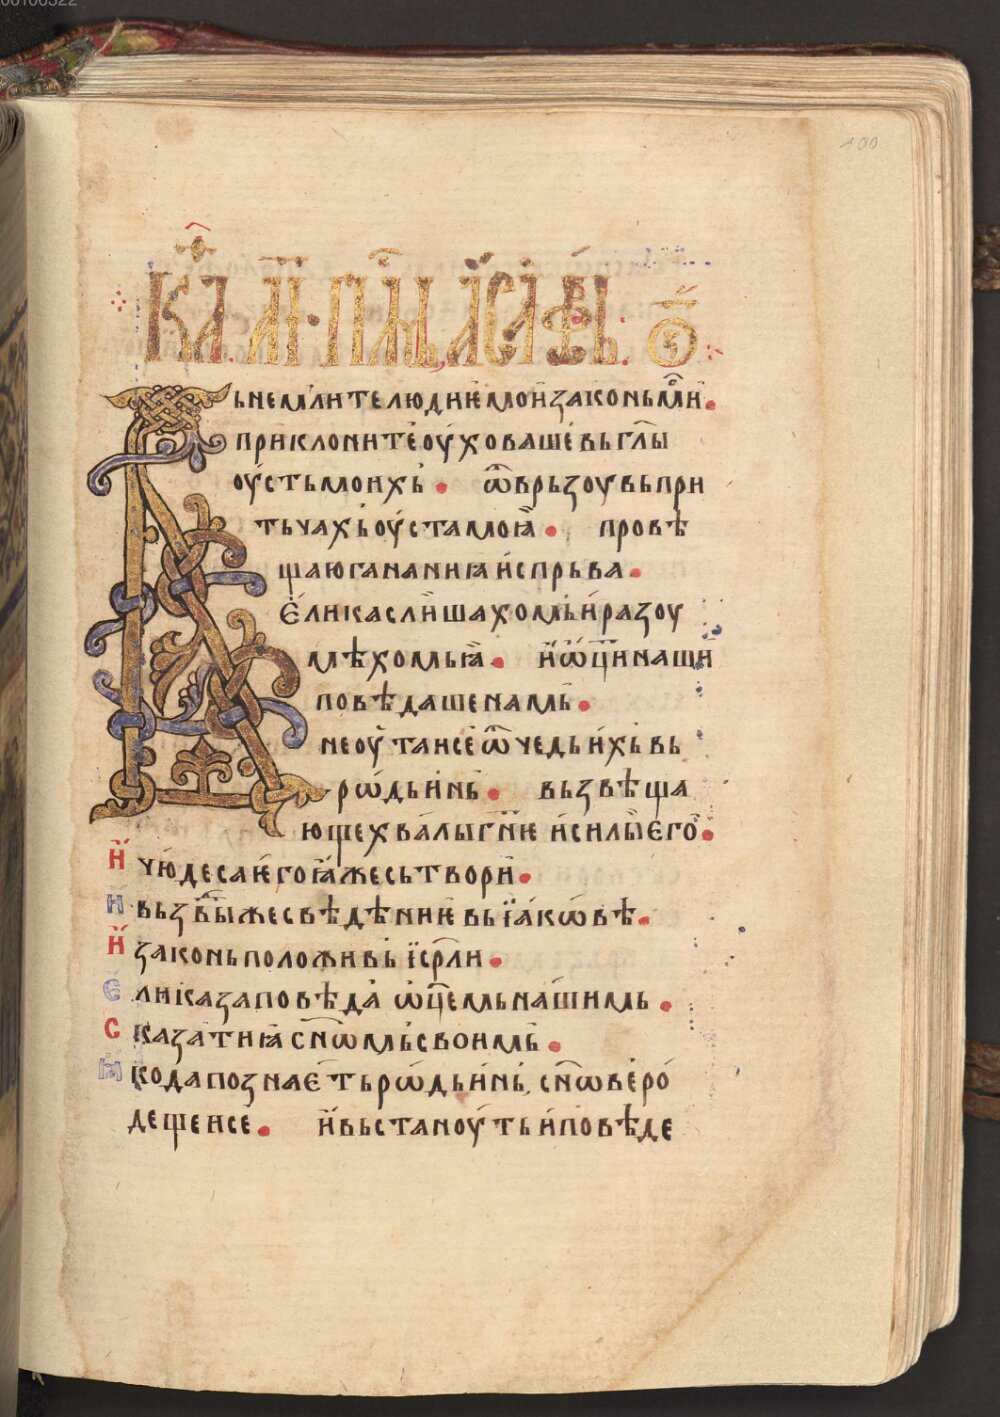 100
Вьнемл́ите людиѥ мои законь мо́и.
приклоните оу́хо ваше вь гл҃ы
оу́сть моихь. ѿврьзоу вь при
тьчахь оу́ста моꙗ. провѣ
щаю гананиꙗ испрьва.
Е́лика слишахомь и разоу
мѣхомь ꙗ. и ѡ҃ци наши
повѣдаше намь.
не оу́таисе ѿ чедь ихь вь
рѡ́дь инь. вьзвѣща
юще хвалы гн҃ѥ и силы ѥго.
И чю́деса ѥго ꙗже сьтвори.
И вьзⷣвиже свѣдѣниѥ вь їа́кѡвѣ.
И законь положи вь їс҃рли.
Елика заповѣда ѡ҃цемь нашимь.
Сказати ꙗ сн҃ѡмь своимь.
Ꙗко да познаѥть рѡ́дь инь, сн҃ѡве ро́
дещеисе. и вьстаноу́ть и повѣде